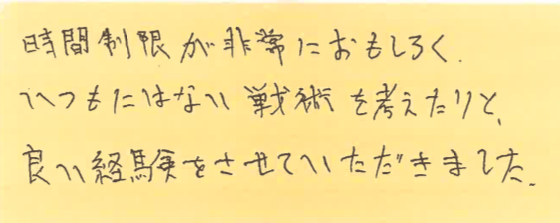 時間制限が非常におもしろく.
いつもにはない戦術を考えたりと、
良い経験をさせていただきました.